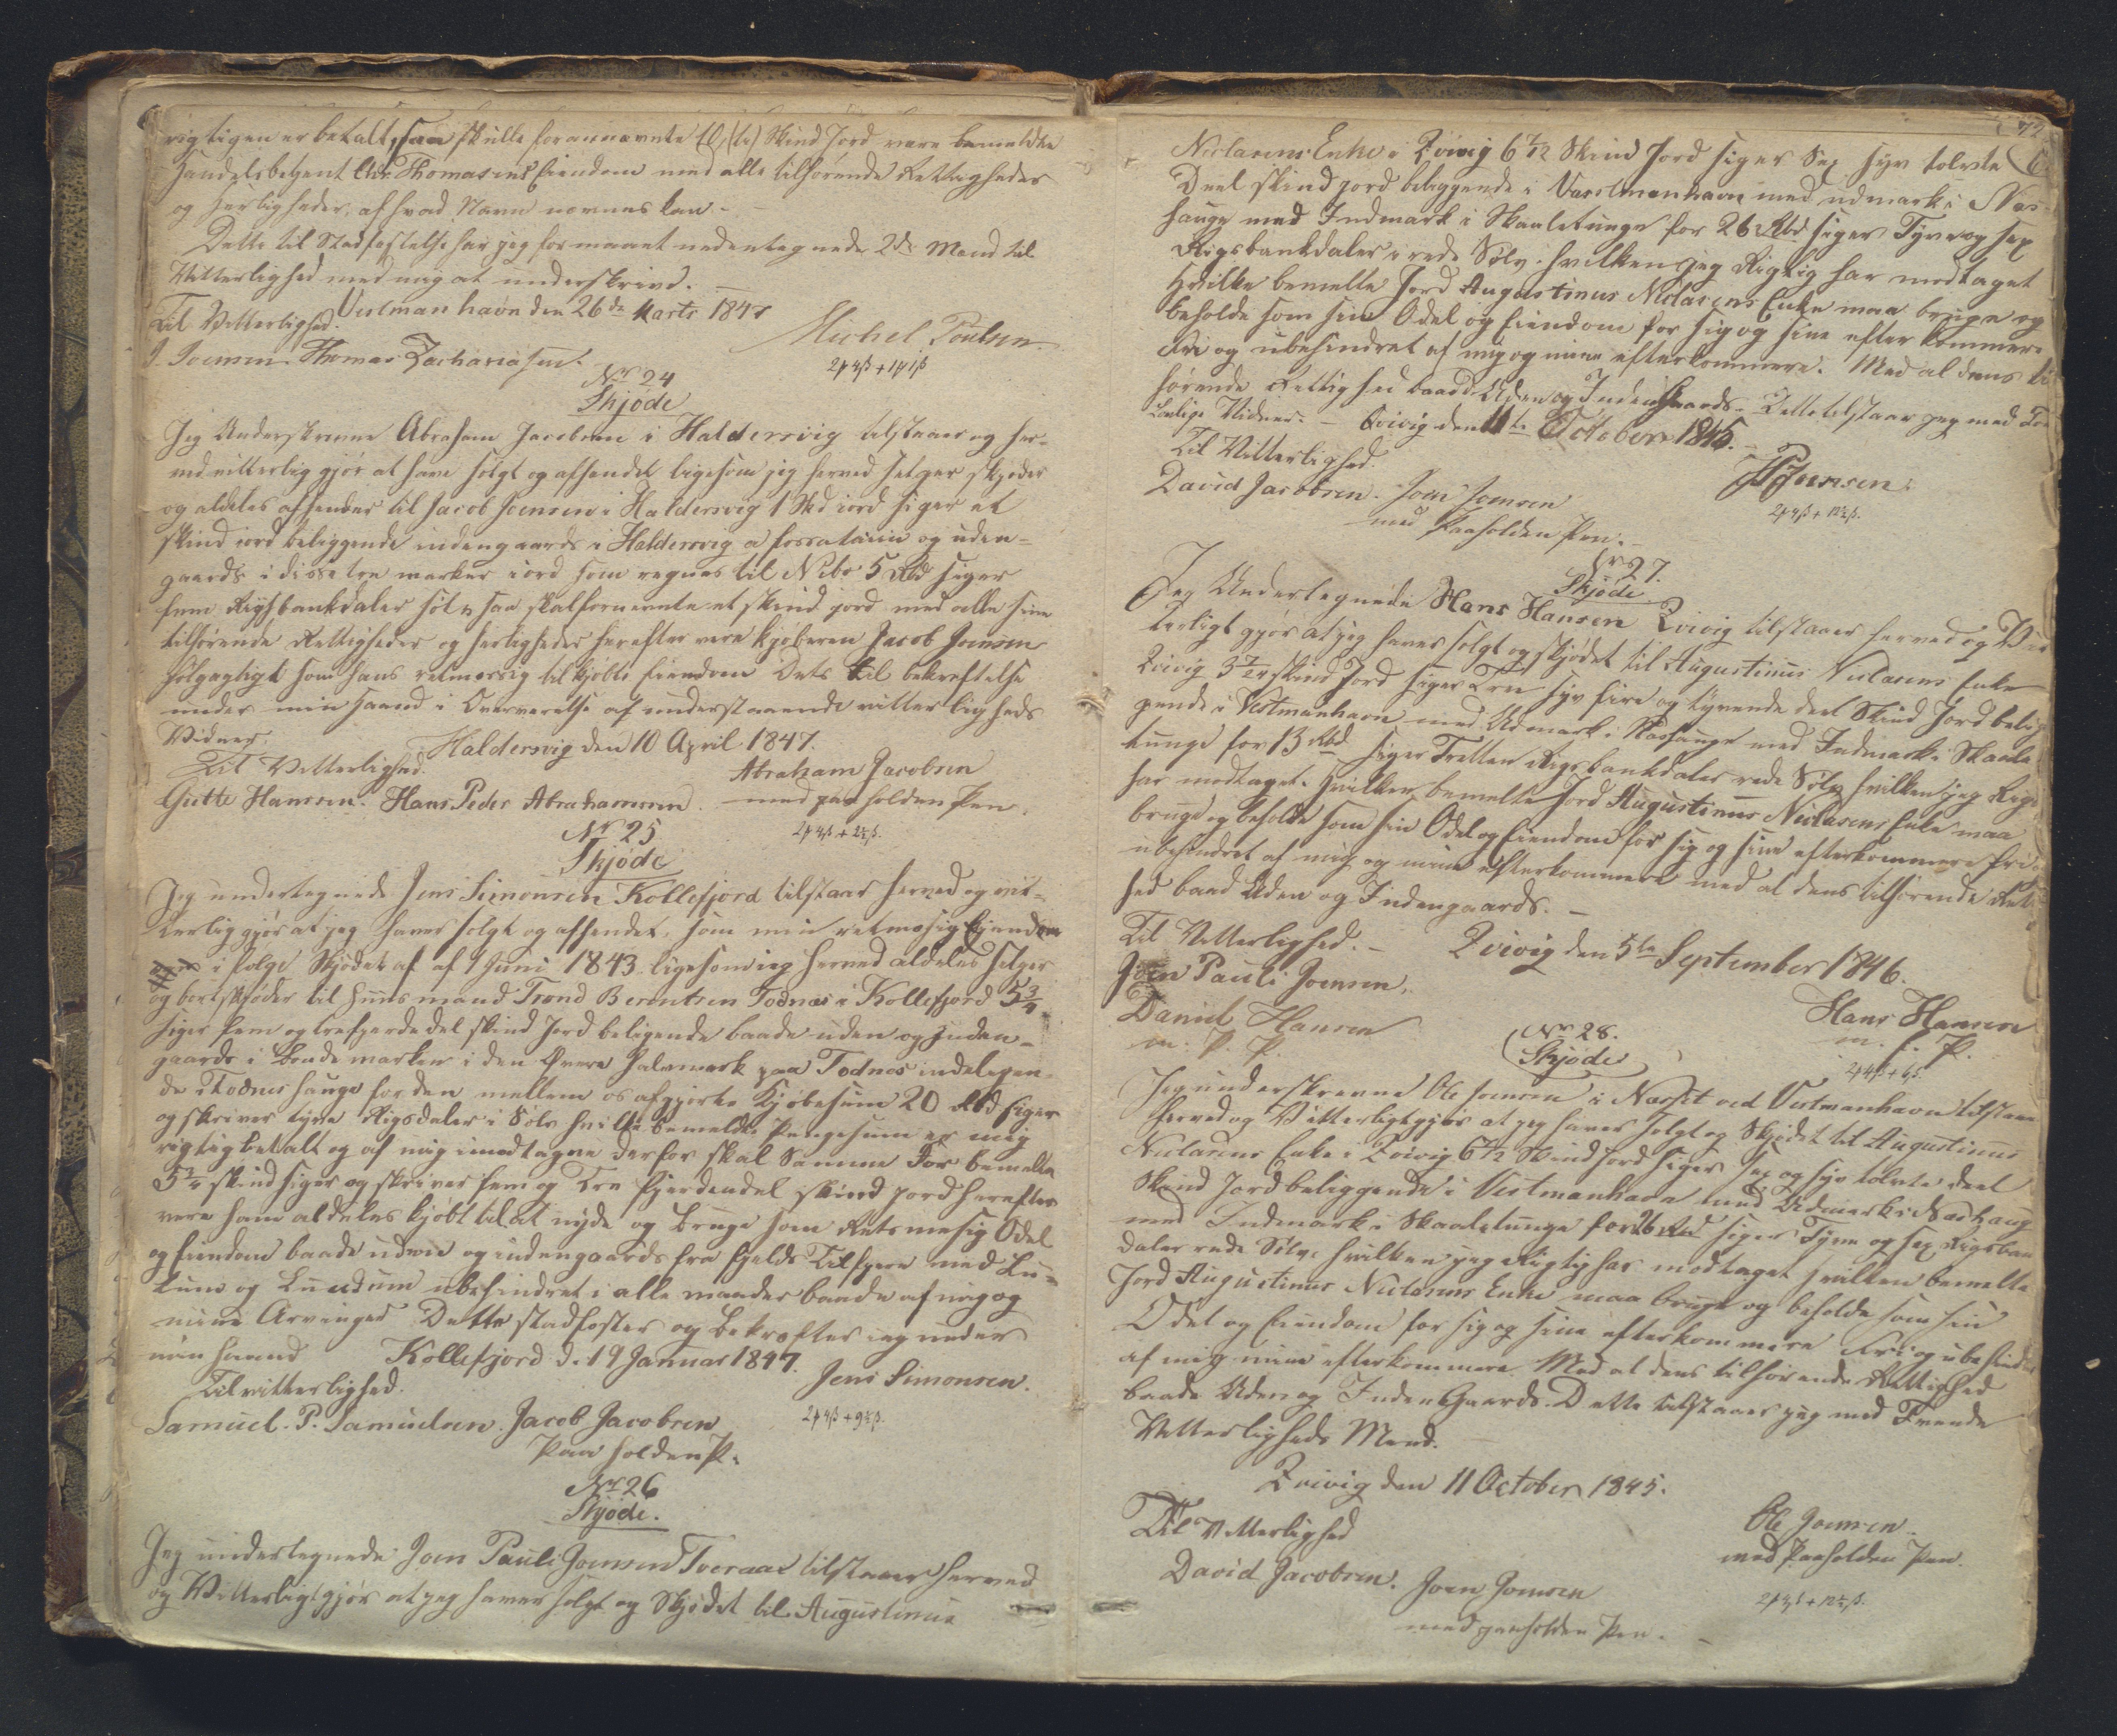 rigtigen er betalt, saa skulle forannævnte 10 (ti) Skind Jord være bemeldte
Handelsbetjent Chr. Thomasens Eiendom med alle tilhørende Rettigheder
og Herligheder, af hvad Navn nævnes kan. -
Dette til Stadfestelse har jeg formaaet nedentegnede 2de Mænd til
Vitterlighed med mig at underskrive. -
Vestmanhavn den 26de Marts 1847
Til Vitterlighed.
J. Joensen. Thomas Zachariasen.
Michel Poulsen.
Nr 24
Skjøde
Jeg Underskrevne Abraham Jacobsen i Haldersvig tilstaaer og her-
med vitterlig gjør at have solgt og afhendet ligesom jeg herved sælger skjøder
og aldeles afhender til Jacob Joensen i Haldersvig 1 Skd iord siger et
skind iord beliggende indengaards i Haldersvig og uden-
gaards i disse tre marker iord som regnes til 5 Rbd siger
fem Rigsbankdaler sølv saa skal fornævnte et skind jord med alle sine
tilhørende Rettigheder og herligheder herefter være kjøberen Jacob Joensen
følgagtigt som hans retmæssig tilkjøbte Eiendom Dets til bekræftelse
under min haand i Overværelse af understaaende vitterligheds
Vidner.
Haldersvig den 10 April 1847.
Til Vitterlighed.
Abraham Jacobsen
Giutte Hansen. Hans Peder Abrahamsen. med paaholden Pen.
Nr 25
Skjøde
Jeg undertegnede Jens Simonsen Kollefjord tilstaar herved og vit-
terlig gjør at jeg haver solgt og afhendet, som min retmæsig Ejendom
i følge Skjødet af af 1 Juni 1843 ligesom jeg herved aldeles sælger
og bortskjøder til Huusmand Trond Berentsen Todnæs i Kollefjord 5 3/4
siger fem og trefjerdedel skind Jord beligende baade uden og inden-
gaards i Bondemarken i den Øvere halvmark paa Todnæs indeligen-
de i Todnæs hauge for den mellem os afgjorte Kjøbesum 20 Rbd siger
og skriver tyve Rigsdaler i Sølv hvilke bemeldte Pengesum er mig
rigtig betalt og af mig imodtagne derfor skal Samme for bemelte
5 3/4 skind siger og skriver fem og Tre fjerdendel skind jord herefter
være ham aldeles kjøbt til at nyde og bruge som Retmæsig Odel
og Eiendom baade uden og indengaards fra fjelde Til fjære med Lu-
tum og Lundum ubehindret i alle maader baade af mig og
mine Arvinger Dette stadfæster og bekræfter ieg under
min haand Kollefjord d. 19 Januar 1847.
Jens Simonsen.
Til vitterlighed.
Samuel. P. Samuelsen. Jacob Jacobsen
Paaholden P.
Nr 26
Skjøde.
Jeg undertegnede Joen Pauli Joensen Tveraae tilstaaer herved
og Vitterligtgjør at jeg haver solgt og Skjødet til Augustinus
Niclasens Enke i Qvivig 6 7/12 Skind Jord siger Sex syv tolvte
Deel skind jord beliggende i Vaestmanhavn med udmark i Næs
hauge med Indmark i Skaaletunge for 26 Rbd siger Tyve og sex
Rigsbankdaler i rede Sølv, hvilken jeg Rigtig har modtaget
Hvilke bemelte Jord Augustinus Niclasens Enke maa bruge og
beholde som sin Odel og Eiendom for sig og sine efterkommere
Fri og ubehindret af mig og mine efterkommere. Med al dens til
hørende Rettighed baade Uden og Inden Gaards. Dette tilstaar jeg med
Lovlige Vidner. - Qvivig den 11te October 1845.
Til Vitterlighed.
JPJoensen.
David Jacobsen. Joen Joensen
med Paaholden Pen.
Nr 27.
Skjøde
Jeg Undertegnede Hans Hansen Qvivig tilstaaer herved og Vit
terligt gjør at jeg haver solgt og skjødet til Augustinus Niclasens Enke
Qvivig 3 7/24 skind Jord siger Tre syv fire og tyvende deel Skind Jord belig
gende i Vestmanhavn med Udmark i Næshauge med Indmark i Skaale
tunge for 13 Rbd siger Tretten Rigsbankdaler rede Sølv hvilken jeg Rigt
har modtaget. Hvilken bemelte Jord Augustinus Niclasens Enke maa
bruge og beholde som sin Odel og Eiendom for sig og sine efterkommere fri
ubehindret af mig og mine efterkommere med al dens tilhørende Ret
hed baad Uden og Indengaards. -
Til Vitterlighed. - Qvivig den 5te September 1846.
Joen Pauli Joensen.
Hans Hansen
Daniel Hansen
m. f. P.
m. f. P.
Nr 28.
Skjøde
Jeg underskrevne Ole Joensen i Næsset ved Vestmanhavn tilstaaer
herved og Vitterligtgjør at jeg haver solgt og Skjødet til Augustinus
Niclasens Enke i Qvivig 6 7/12 Skind Jord siger Sex og syv tolvte deel
Skind Jord beliggende i Vestmanhavn med Udmark i Næshaug
med Indmark i Skaaletunge for 26 Rbd siger Tyve og sex Rigsban
daler rede Sølv, hvilken jeg Rigtig har modtaget hvilken bemelte
Jord Augustinus Niclasens Enke maa bruge og beholde som sin
Odel og Eiendom for sig og sine efterkommere Fri og ubehindret
af mig mine efterkommere Med al dens tilhørende Rettighed
baade Uden og Inden Gaards. Dette tilstaaer jeg med Tvende
Vitterligheds Mænd.
Qvivig den 11 October 1845.
Til Vitterlighed
Ole Joensen
med Paaholden Pen.
David Jacobsen. Joen Joensen
med paaholden Pen. -